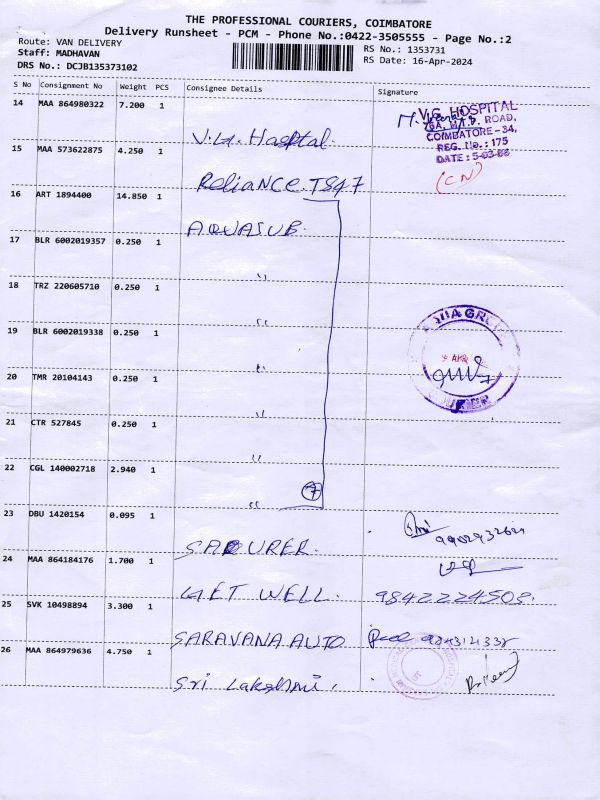 THE PROFESSIONAL COURIERS, COIMBATORE
Delivery Runsheet - PCM - Phone No.:0422-3505555 - Page No.:2
Route: VAN DELIVERY RS No.: 1353731
Staff: MADHAVAN RS Date: 16-Apr-2024
DRS No.: DCJB135373102
S No Consignment No Weight PCS Consignee Details Signature
14 MAA 864980322 7.200 1
V.G. Hospital
V.G. HOSPITAL
ROAD,
COIMBATORE-34,
REG. No.: 175
DATE: 5-03-86
(CN)
15 MAA 573622875 4.250 1
Reliance. TS47
16 ART 1894400 14.850 1
AQUASUB
17 BLR 6002019357 0.250 1
"
18 TRZ 220605710 0.250 1
"
19 BLR 6002019338 0.250 1
"
20 TMR 20104143 0.250 1
"
21 CTR 527845 0.250 1
"
22 CGL 140002718 2.940 1
" 7
23 DBU 1420154 0.095 1
SAQURER.
24 MAA 864184176 1.700 1
GET WELL. 9842224508.
25 SVK 10498894 3.300 1
SARAVANA AUTO
26 MAA 864979636 4.750 1
Sri Lakshmi.